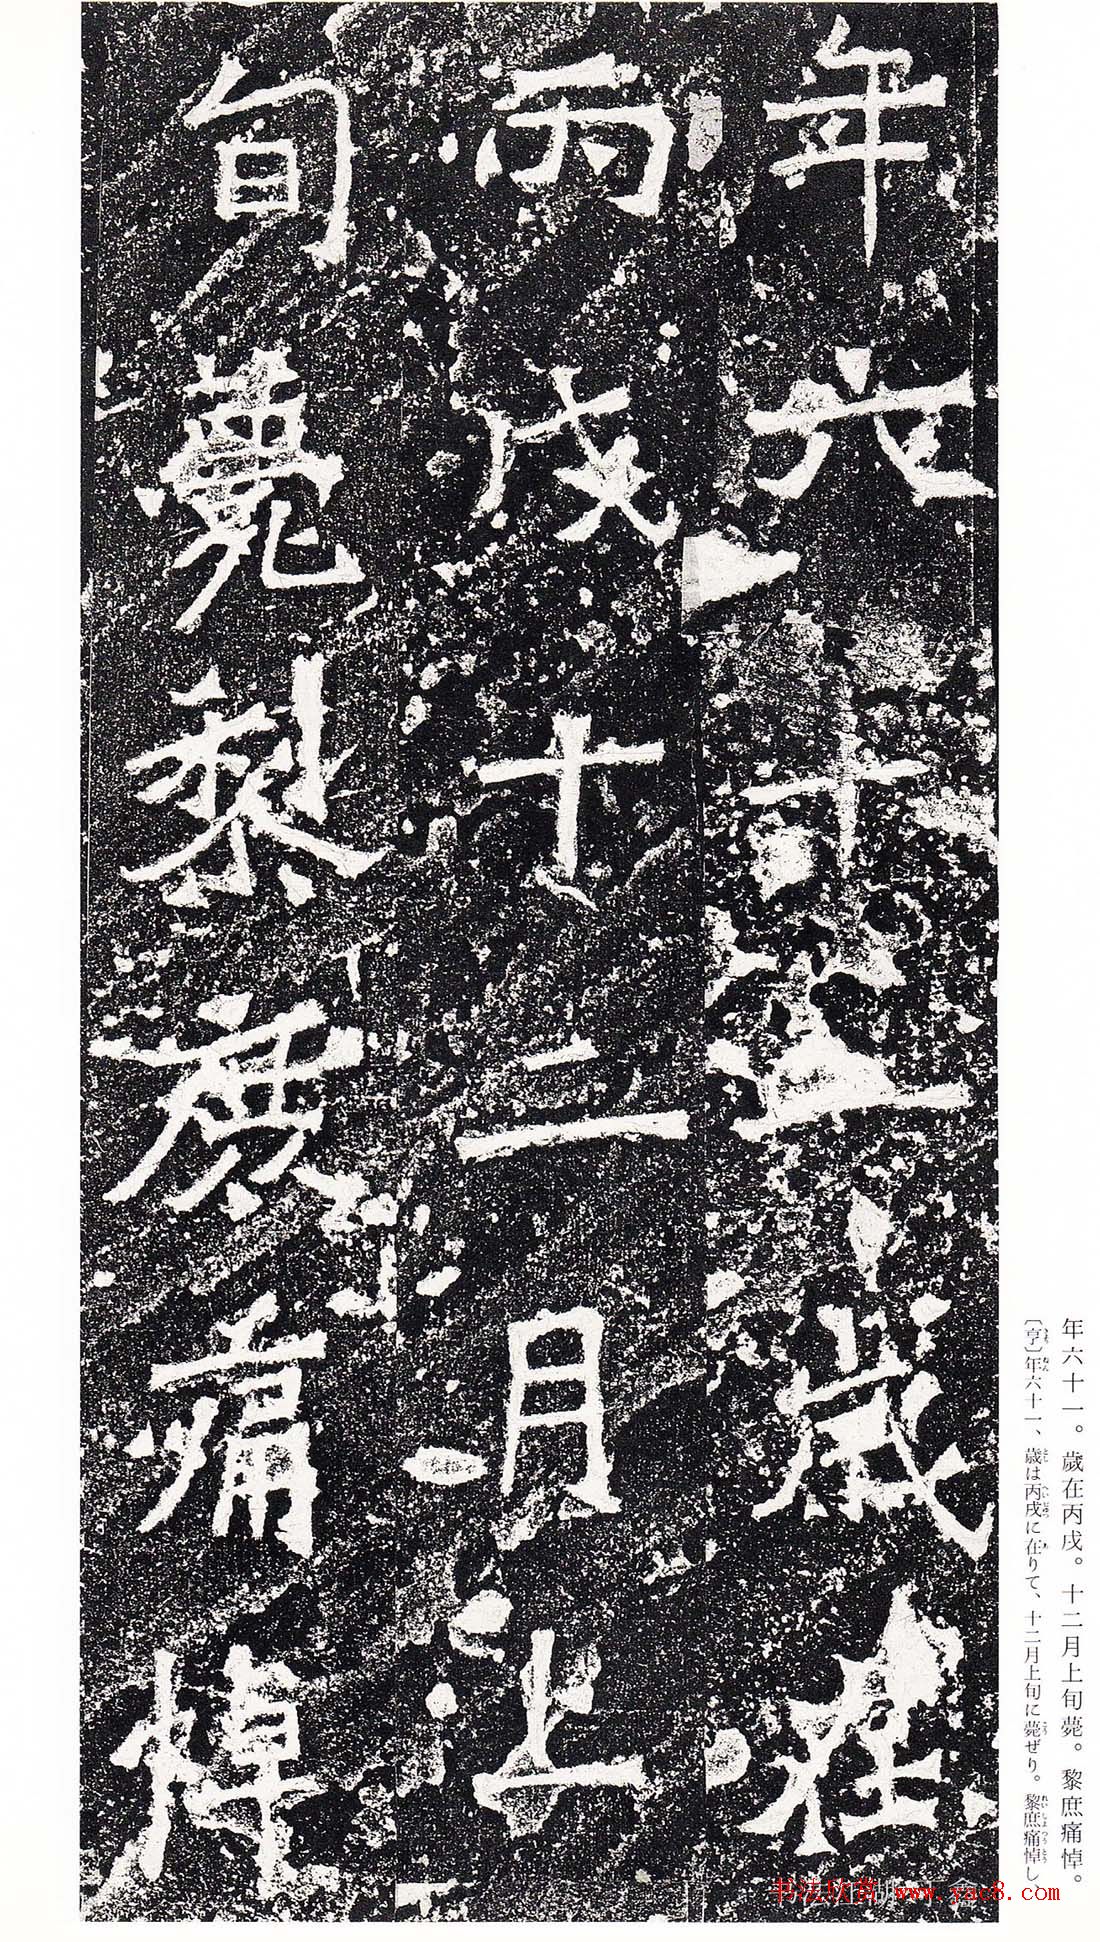 年六十一歲在
丙戌十二月上
旬薨黎庶痛悼
年六十一。歲在丙戌。十二月上旬薨。黎庶痛悼。
〔亨〕年六十一、歳は丙戌に在りて、十二月上旬に薨ぜり。黎庶痛悼し
书法欣赏 www.yac8.com